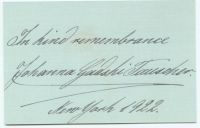 In kind remembrance
Johanna Gadski-Tauscher.
New York 1922.